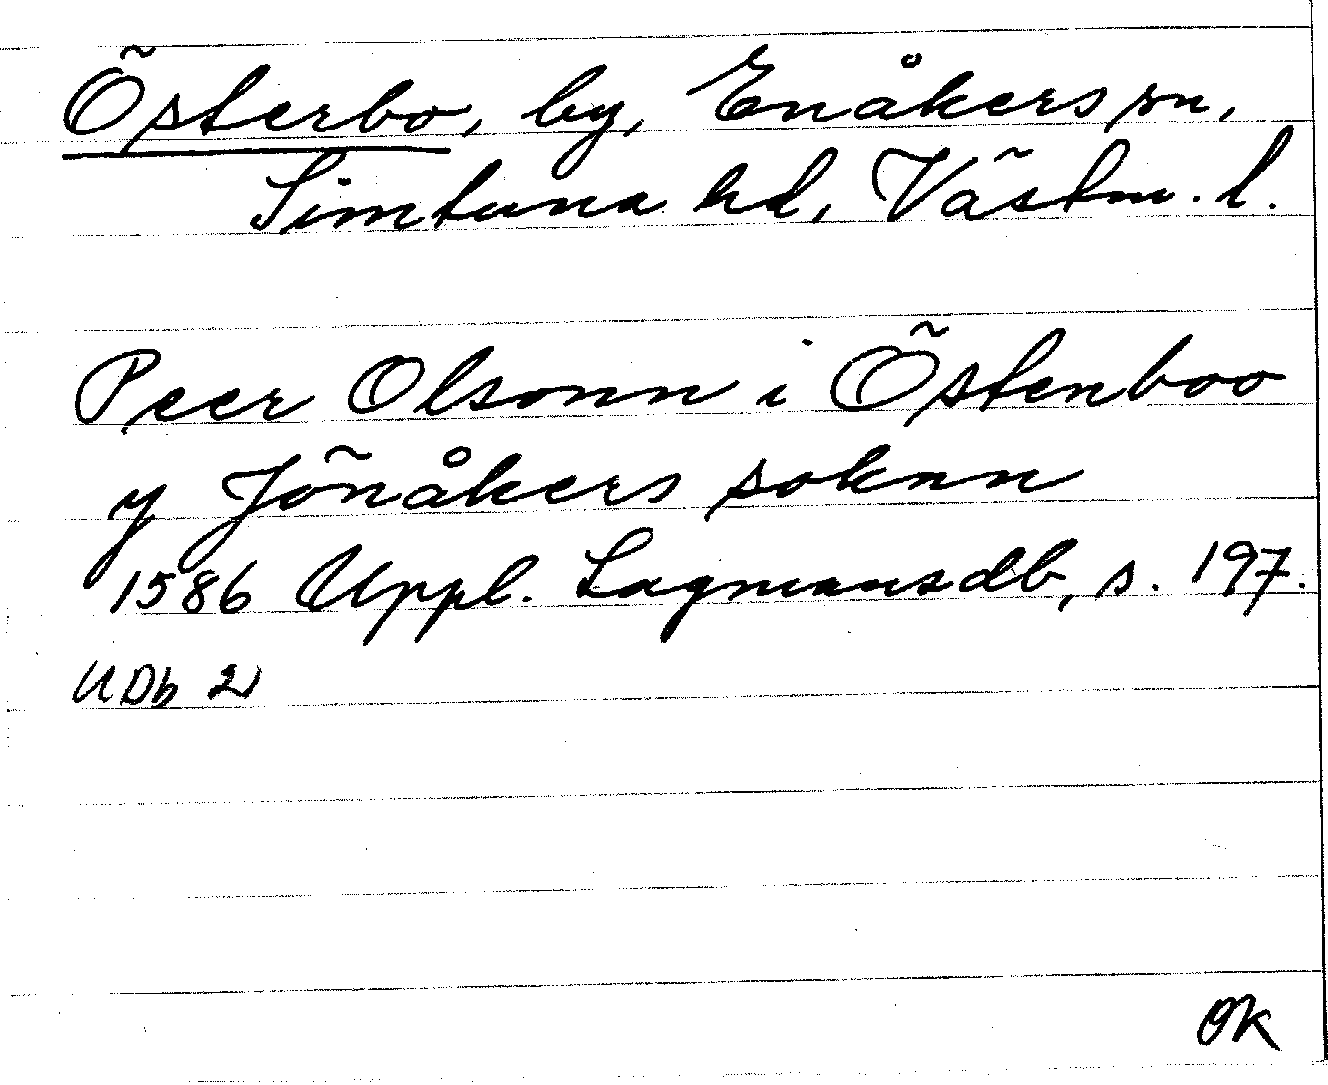 Österbo, by, Enåkers sn,
Simtuna hd, Västm. l.
Peer Olsonn i Östenboo
y Jönåkers soknn
1586 Uppl. Lagmansdb, s. 197.
UDb 2
OK